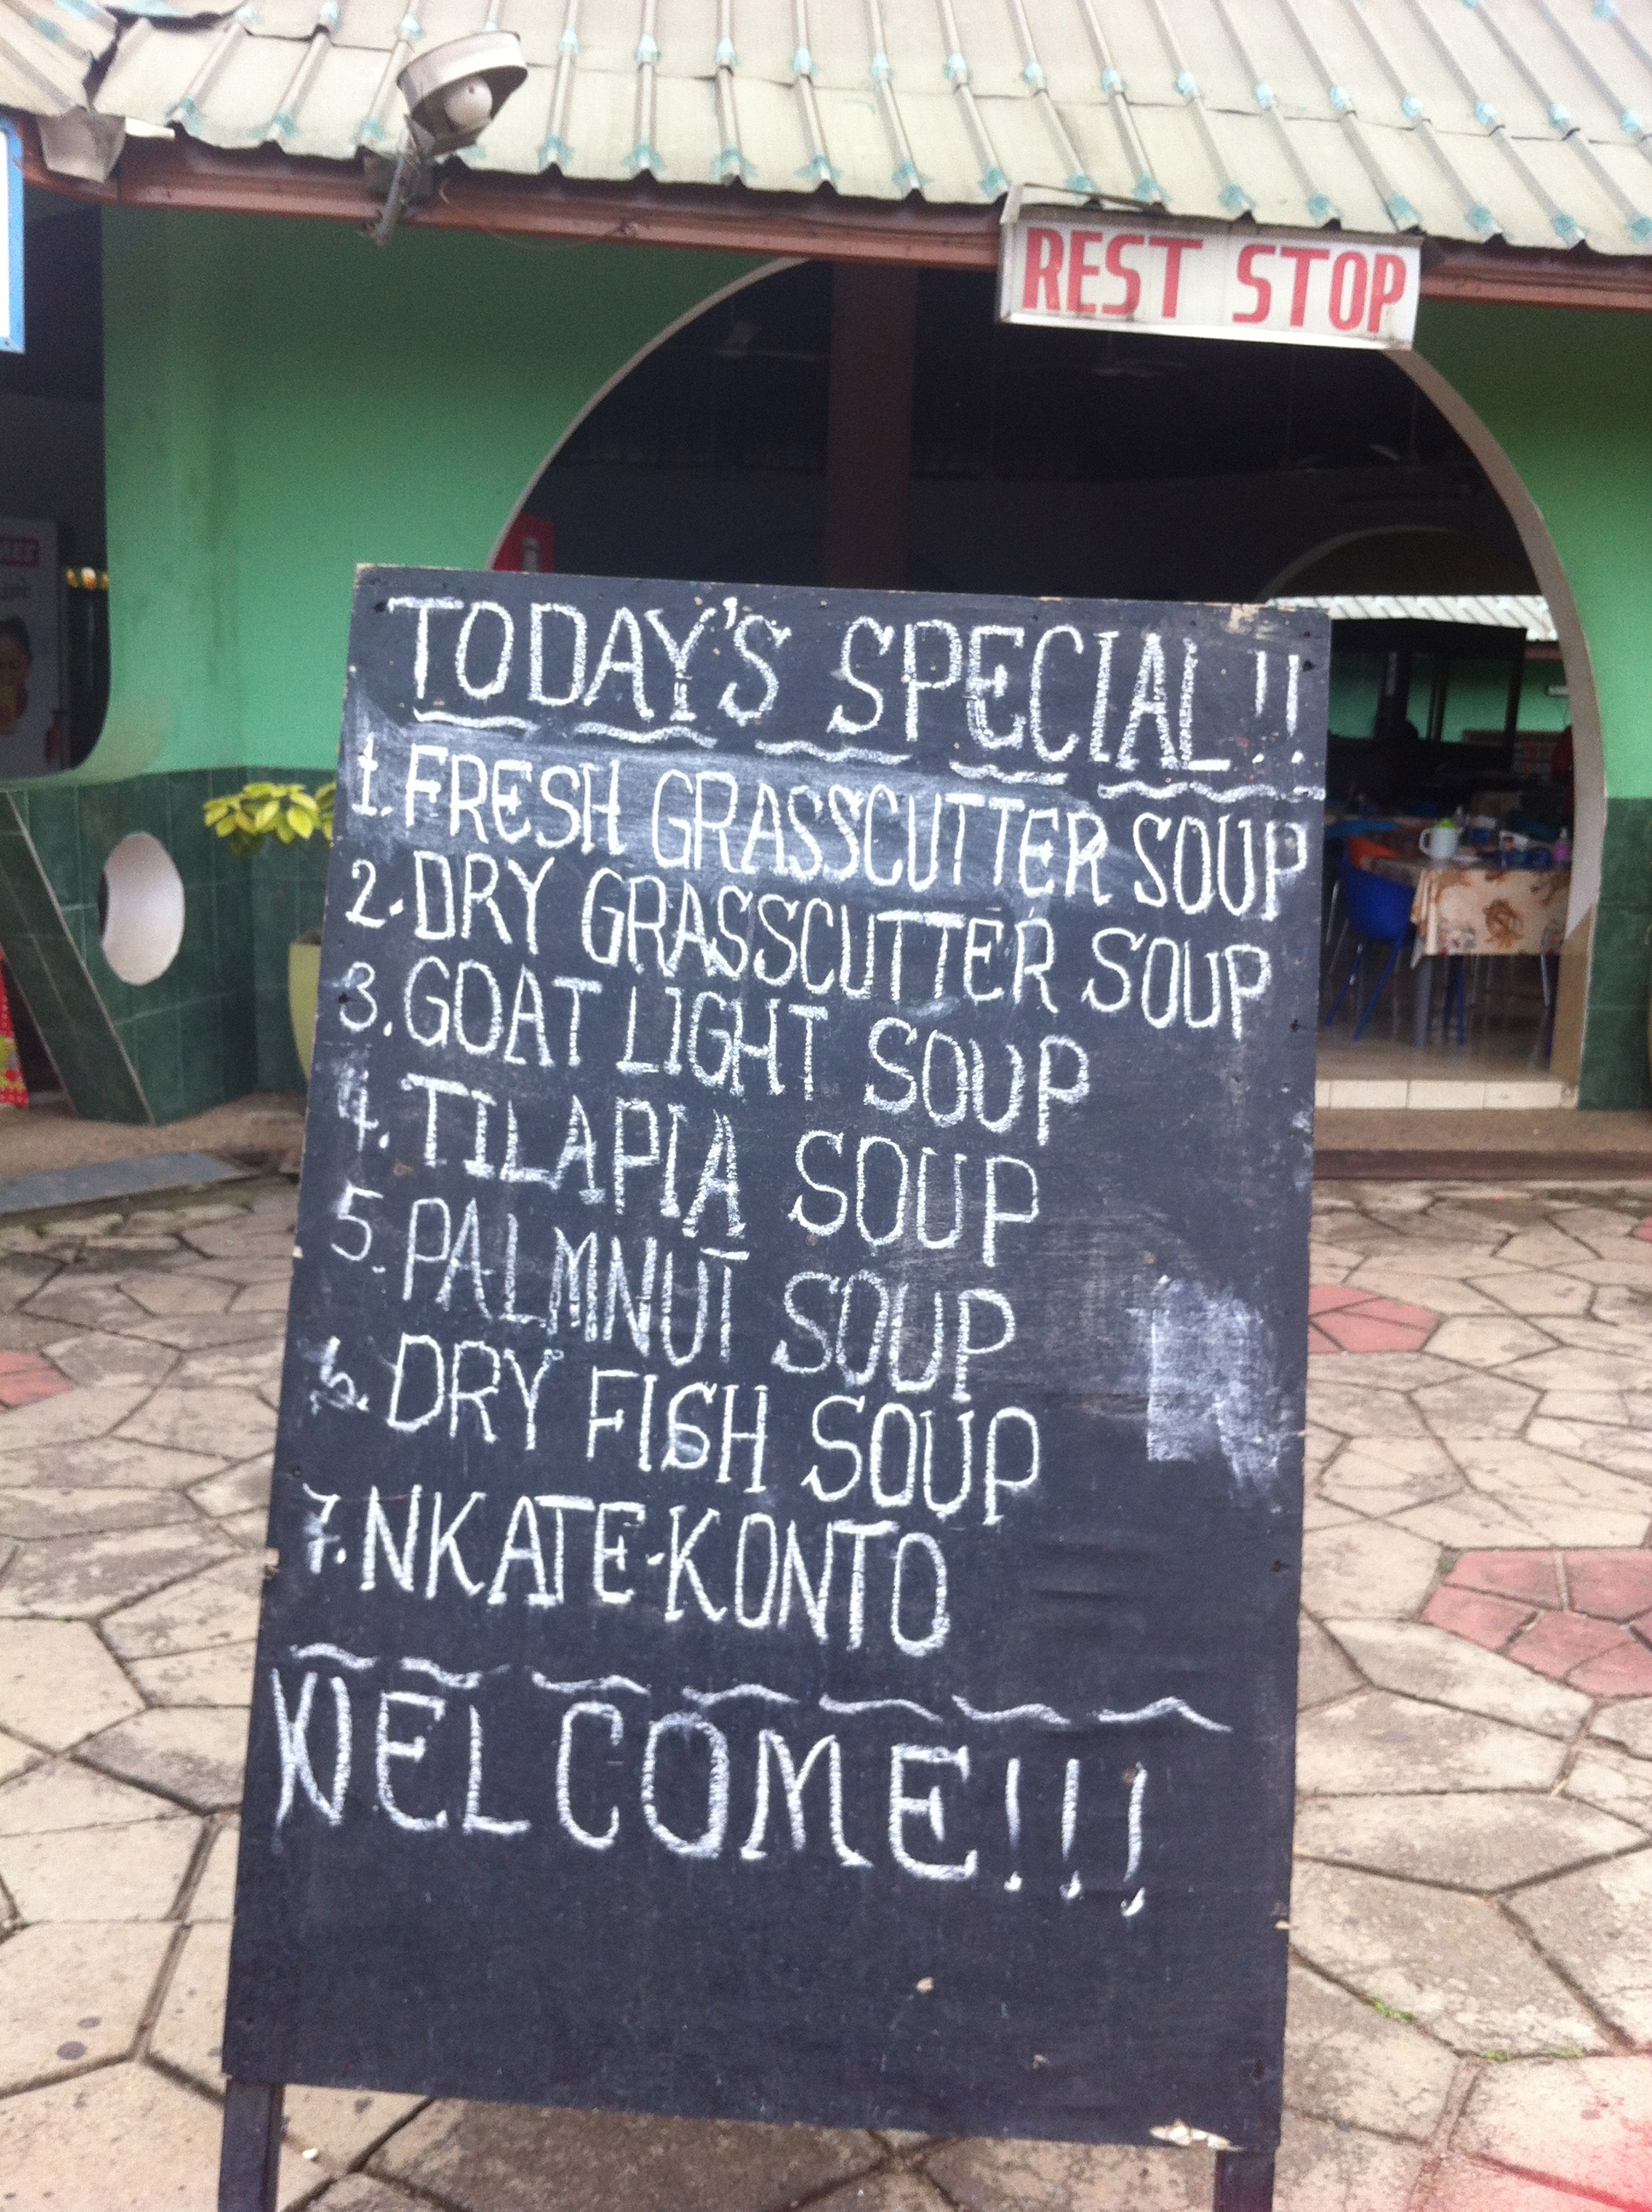 REST STOP
TODAY'S SPECIAL!!
1. FRESH GRASSCUTTER SOUP
2. DRY GRASSCUTTER SOUP
3. GOAT LIGHT SOUP
4. TILAPIA SOUP
5. PALMNUT SOUP
6. DRY FISH SOUP
7. NKATE-KONTO
WELCOME!!!